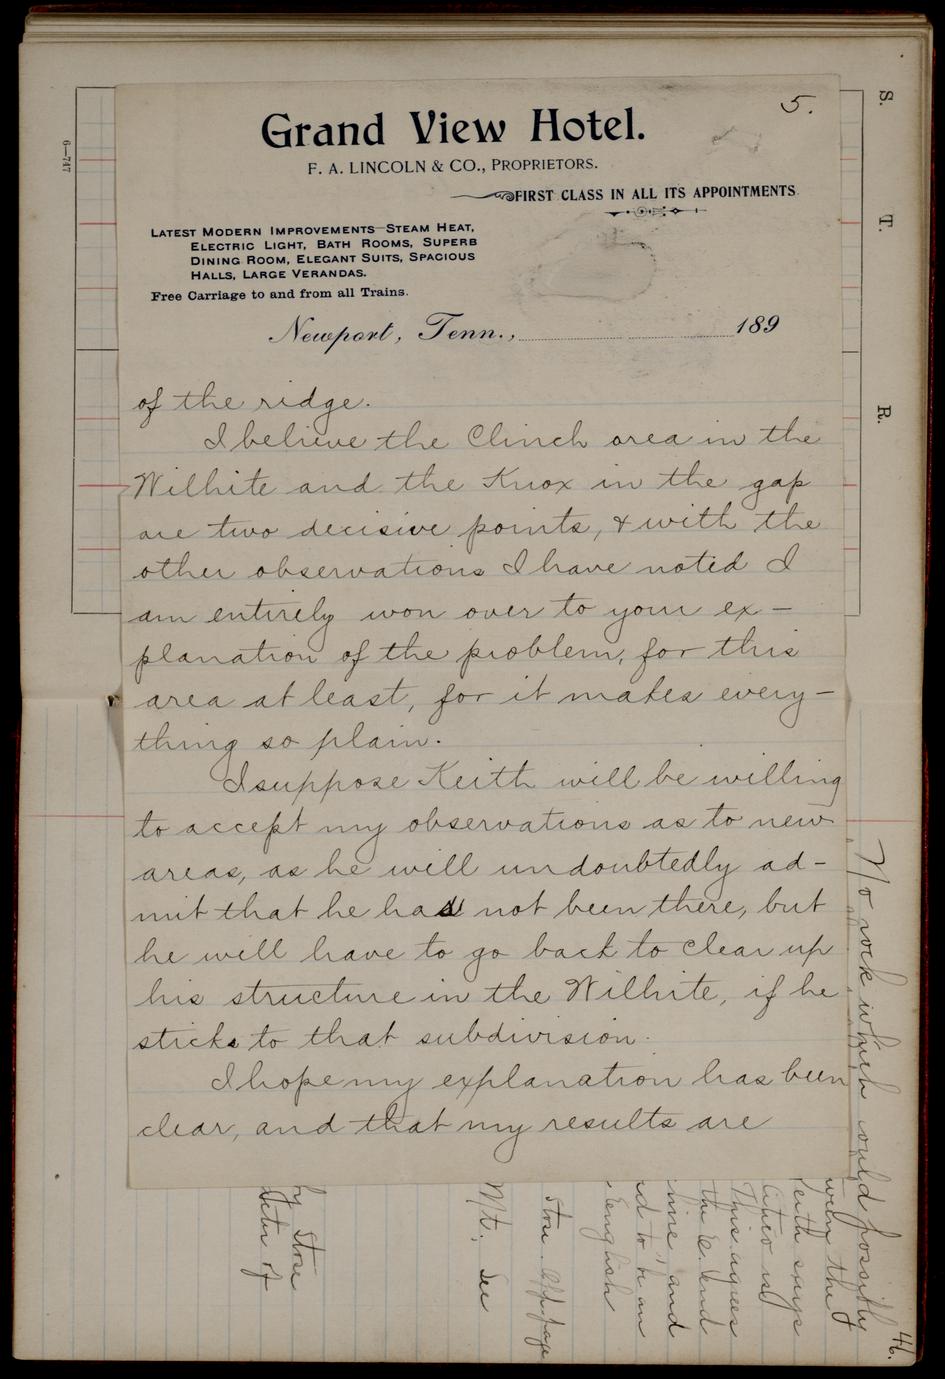 5.
Grand View Hotel.
F. A. LINCOLN & CO., PROPRIETORS.
FIRST CLASS IN ALL ITS APPOINTMENTS
LATEST MODERN IMPROVEMENTS—STEAM HEAT,
ELECTRIC LIGHT, BATH ROOMS, SUPERB
DINING ROOM, ELEGANT SUITS, SPACIOUS
HALLS, LARGE VERANDAS.
Free Carriage to and from all Trains.
Newport, Tenn., 189
of the ridge.
I believe the Clinch area in the
Wilhite and the Knox in the gap
are two decisive points, & with the
other observations I have noted I
am entirely won over to your ex-
planation of the problem, for this
area at least, for it makes every-
thing so plain.
I suppose Keith will be willing
to accept my observations as to new
areas, as he will undoubtedly ad-
mit that he has not been there, but
he will have to go back to clear up
his structure in the Wilhite, if he
sticks to that subdivision.
I hope my explanation has been
clear, and that my results are
6—747
S.
T.
R.
No rock which would possibly
the
says
This agrees
the E. end
and
to be an
English
Stose. App page
Mt. See
by Stose
of
46.